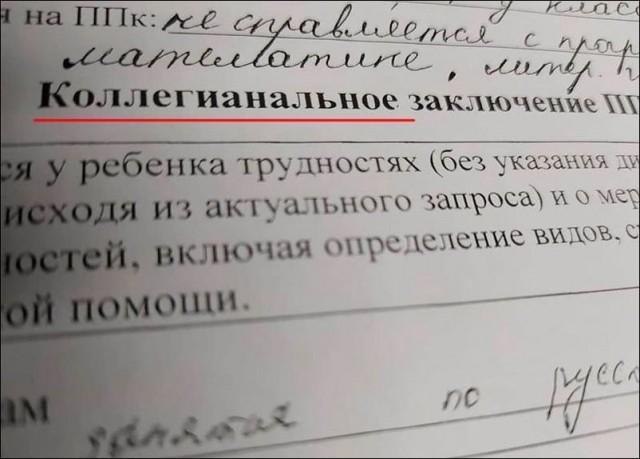 на ППк: не справляется с
математике, литер.
Коллегианальное заключение
у ребенка трудностях (без указания
исходя из актуального запроса) и о
включая определение видов,
помощи.
занятия по